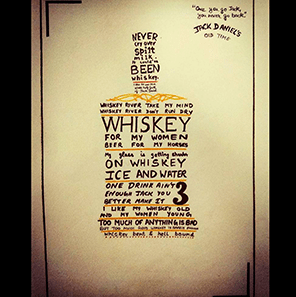 "Once you go Jack,
you never go back."
JACK DANIEL'S
OLD TIME
NEVER
cry over
spilt
milk
BEEN
whiskey.
WHISKEY RIVER TAKE MY MIND
WHISKEY RIVER DON'T RUN DRY
WHISKEY
FOR MY WOMEN
BEER FOR MY HORSES
My glass is getting
ON WHISKEY
ICE AND WATER
ONE DRINK AIN'T
ENOUGH JACK YOU
BETTER MAKE IT 3
I LIKE MY WHISKEY OLD
AND MY WOMEN YOUNG
TOO MUCH OF ANYTHING IS BAD
BUT TOO MUCH
whiskey bent & hell bound